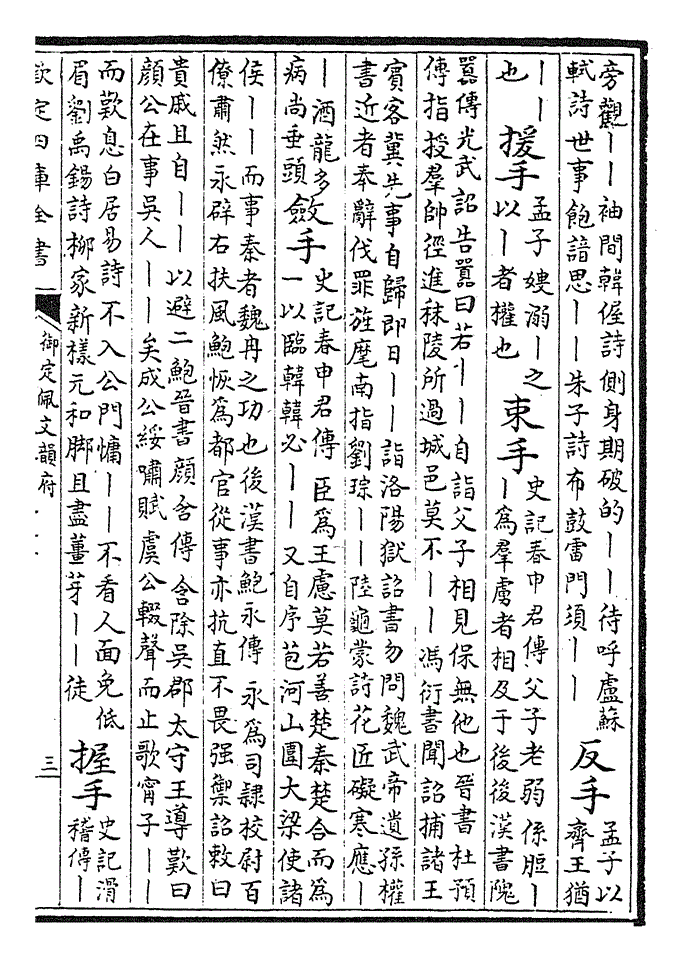 旁觀——袖間韓偓詩側身期破的——待呼盧蘇
軾詩世事飽諳思——朱子詩布鼓雷門須——
反手
孟子以
齊王猶
——
也
援手
孟子嫂溺—之
以—者權也
束手
史記春申君傳父子老弱係脰—
—為羣虜者相及于後後漢書隗
囂傳光武詔告囂曰若——自詣父子相見保無他也晉書杜預
傳指授羣帥徑進秣陵所過城邑莫不——馮衍書聞詔捕諸王
賓客冀先事自歸即日——詣洛陽獄詔書勿問魏武帝遺孫權
書近者奉辭伐罪旌麾南指劉琮——陸龜蒙詩花匠礙寒應—
—酒龍多
病尚垂頭
斂手
史記春申君傳 臣為王慮莫若善楚秦楚合而為
一以臨韓韓必——又自序苞河山圍大梁使諸
侯——而事秦者魏冉之功也後漢書鮑永傳 永為司隸校尉百
僚肅然永辟右扶風鮑恢為都官從事亦抗直不畏强禦詔敕曰
貴戚且自——以避二鮑晉書顔含傳 含除吳郡太守王導歎曰
顔公在事吳人——矣成公綏嘯賦虞公輟聲而止歌甯子——
而歎息白居易詩不入公門慵——不看人面免低
眉劉禹錫詩柳家新樣元和脚且盡薑芽——徒
握手
史記滑
稽傳—
欽定四庫全書
御定佩文韻府
三